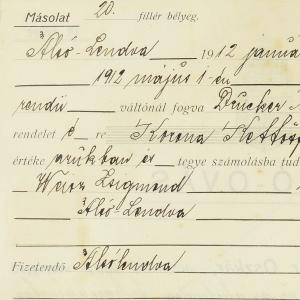 Másolat 20. fillér bélyeg.
Alsó-Lendva 1912 január
1912 május 1-én
rendü váltónál fogva Drucker
rendelet é re Korona Kettős
értéke árúkban és tegye számolásba tud
Weisz Zsigmond
Alsó-Lendva
Fizetendő Alsólendva